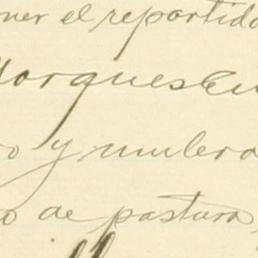 ner el repartido
Marques En
o y mulera
o de pastura,